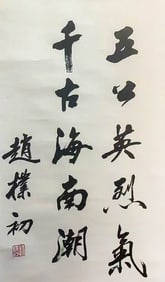 五公英烈氣
千古海南潮
趙樸初